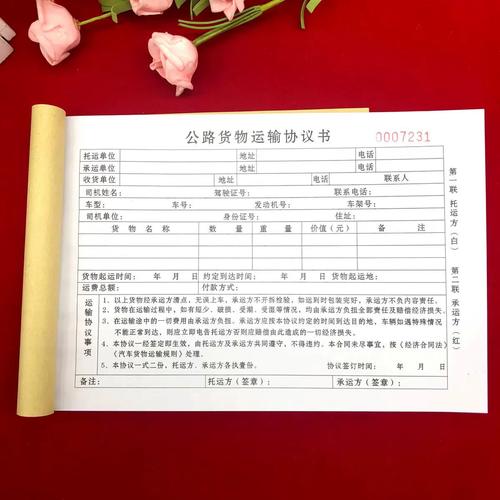 公路货物运输协议书 0007231
托运单位 地址 电话
承运单位 地址 电话
收货单位 地址 联系人
司机姓名: 驾驶证号: 联系电话:
车型: 车号: 发动机号: 车架号:
司机单位: 身份证号: 住址:
货物名称 数量 重量 价值(元) 备注
货物起运时间: 年 月 日 约定到达时间: 年 月 日 货物起运地:
运费总额: 付款方式:
运输协议事项
1、以上货物经承运方清点,无误上车,承运方不开拆检验,如运到时包装完好,承运方不负内容责任。
2、货物在运输过程中,如有短少、破损、受潮、受湿等情况,均由承运方负担全部责任及赔偿经济损失。
3、在运输途中的一切费用由承运方负担。承运方应按本协议约定的时间到达目的地,车辆如遇特殊情况
不能正常到达,则应立即电告托运方否则应赔偿由此造成的一切经济损失。
4、本协议一经签定即生效,由托运方及承运方共同遵守,不得违约。本合同未尽事宜,按《经济合同法》
《汽车货物运输规则》处理。
5、本协议一式二份,托运方、承运方各执壹份。 协议签订时间: 年 月 日
备注: 托运方(签章): 承运方(签章):
第一联 托运方(白) 第二联 承运方(红)